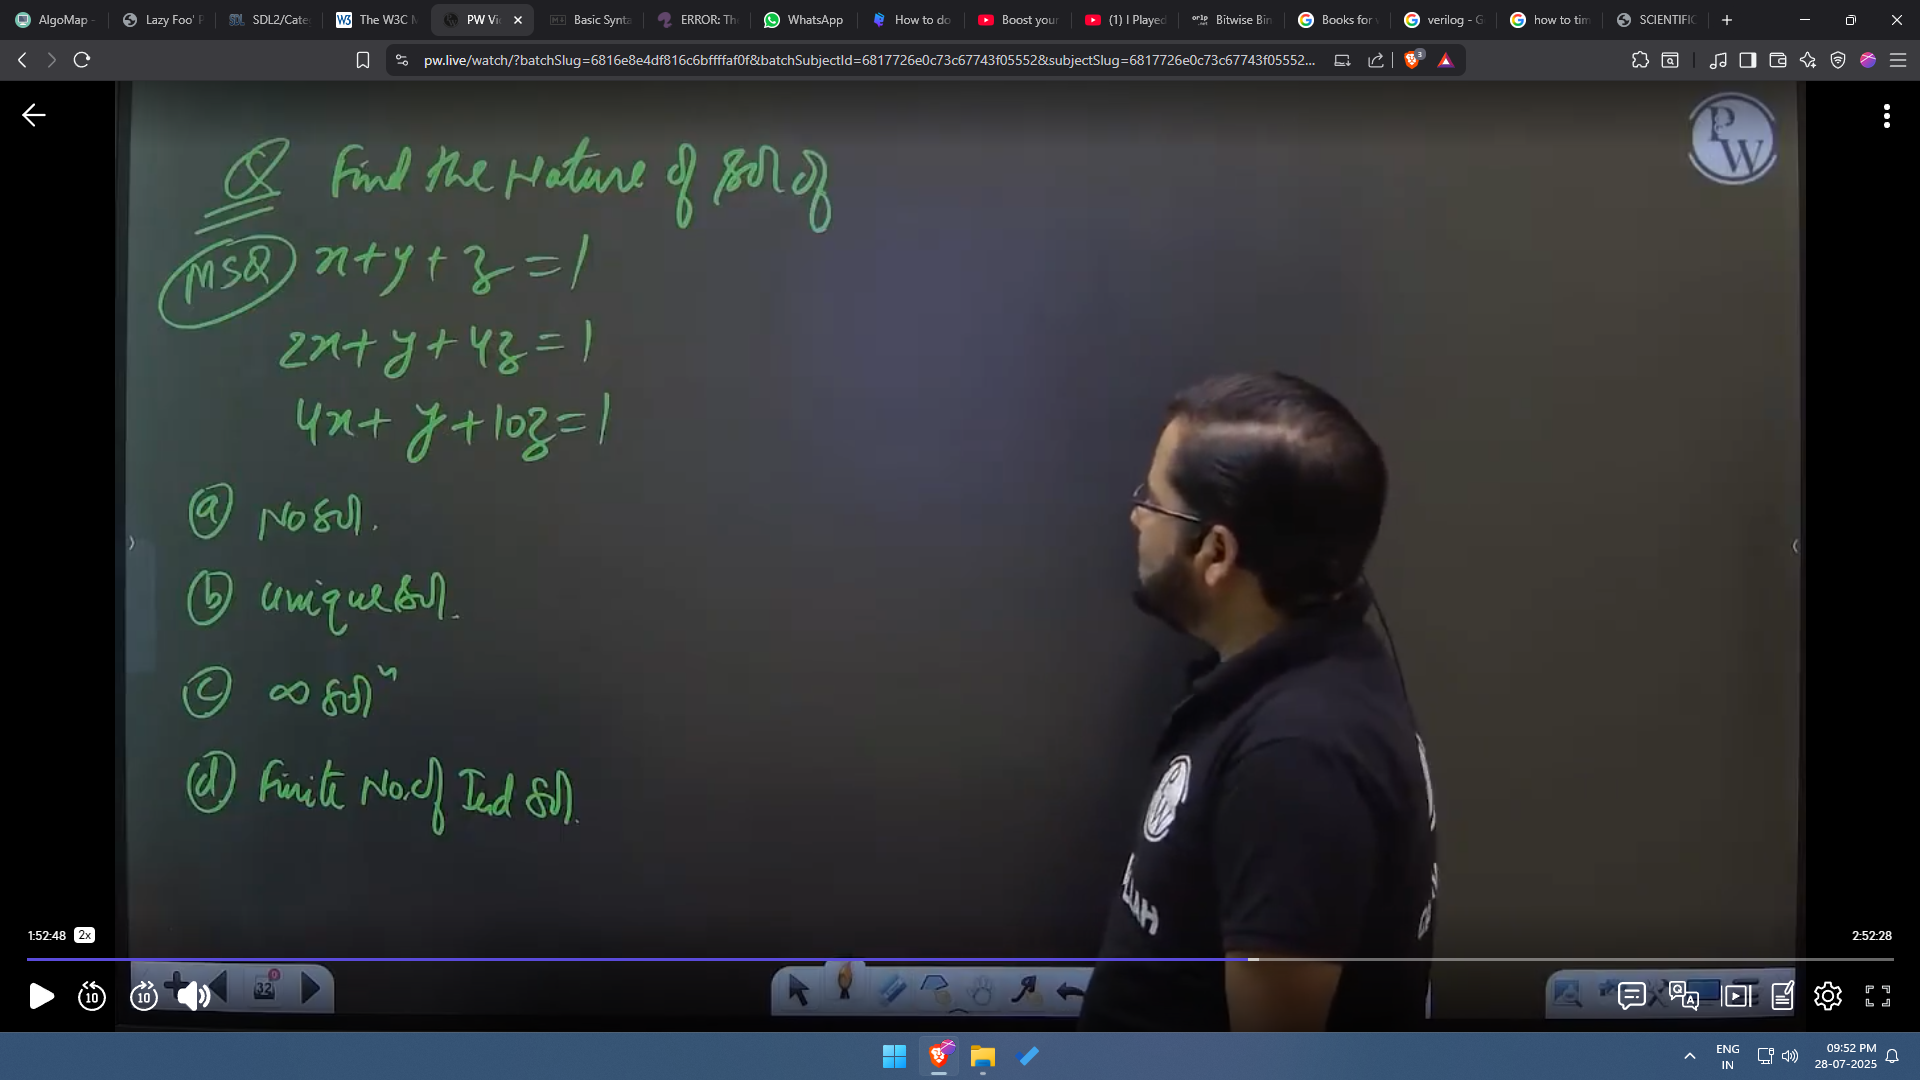 AlgoMap -
Lazy Foo' P
SDL2/Cate
The W3C M
PW Vi
Basic Synta
ERROR: Th
WhatsApp
How to do
Boost your
(1) I Played
Bitwise Bin
Books for v
verilog - G
how to tim
SCIENTIFIC
pw.live/watch/?batchSlug=6816e8e4df816c6bffffaf0f&batchSubjectId=6817726e0c73c67743f05552&subjectSlug=6817726e0c73c67743f05552...
3
PW
Q Find the Nature of Sol of
MSQ x+y+z=1
2x+y+4z=1
4x+y+10z=1
(a) No Sol.
(b) Unique Sol.
(c) ∞ Solⁿ
(d) Finite No. of Ind Sol.
1:52:48 2x
2:52:28
10
10
32
0
ENG
IN
09:52 PM
28-07-2025